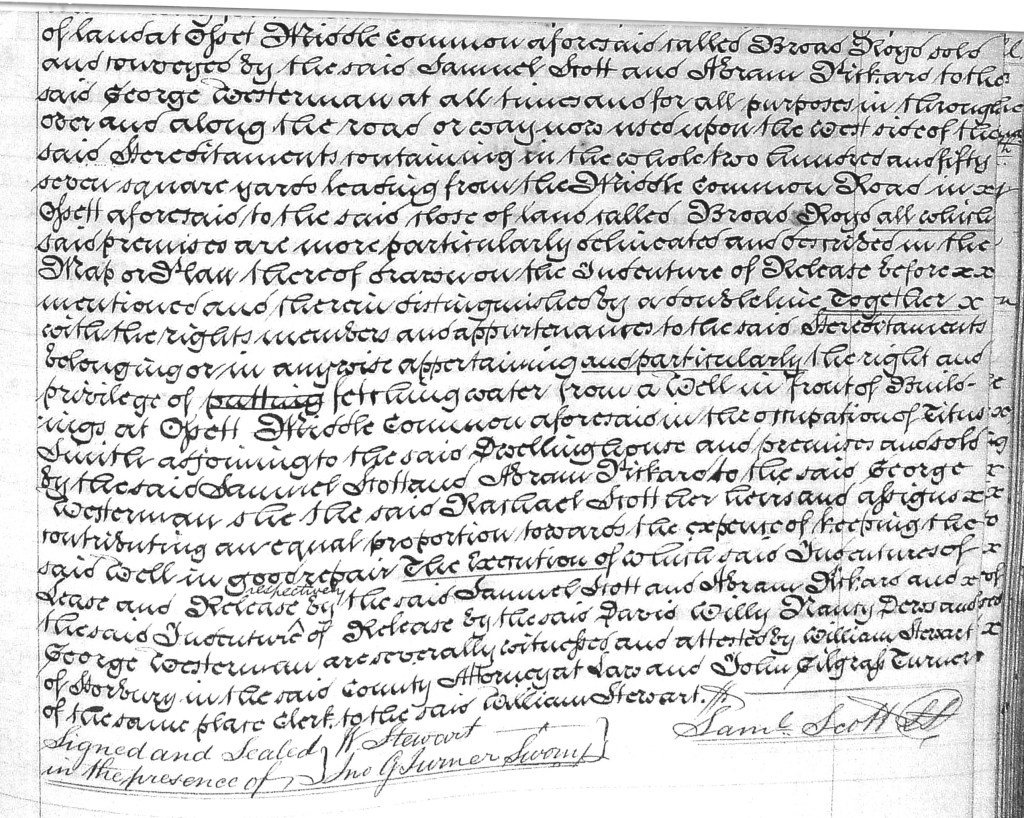 of land at Ossett Middle Common aforesaid called Broad Royd sold
and conveyed by the said Samuel Scott and Abram Pickard to the
said George Westerman at all times and for all purposes in through
over and along the road or way now used upon the West side of the
said Hereditaments containing in the whole two hundred and fifty
seven square yards leading from the Middle Common Road in x
Ossett aforesaid to the said close of land called Broad Royd all which
said premises are more particularly delineated and described in the
Map or Plan thereof drawn on the Indenture of Release before x x
mentioned and therein distinguished by a double line Together x
with the rights members and appurtenances to the said Hereditaments
belonging or in anywise appertaining and particularly the right and
privilege of putting fetching water from a Well in front of Build-
ings at Ossett Middle Common aforesaid in the occupation of Titus
Smith adjoining to the said Dwellinghouse and premises and sold
by the said Samuel Scott and Abram Pickard to the said George
Westerman she the said Rachael Scott her heirs and assigns x x
contributing an equal proportion towards the expence of keeping the
said Well in good repair The Execution of which said Indentures of
Lease and Release respectively by the said Samuel Scott and Abram Pickard and x
the said Indenture of Release by the said David Willy Nanty Dews and
George Westerman are severally witnessed and attested by William Stewart
of Horbury in the said County Attorney at Law and John Gilgrass Turner
of the same place Clerk to the said William Stewart.
Saml. Scott LS
Signed and Sealed } W Stewart
in the presence of } Jno G Turner Sworn }